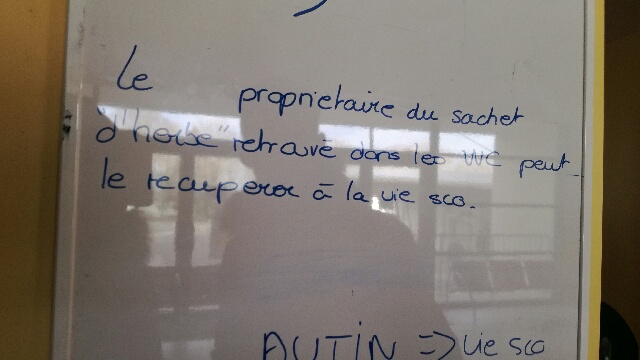 Le proprietaire du sachet
d'"herbe" retrouvé dans les WC peut
le recuperer à la vie sco.
AUTIN => vie sco